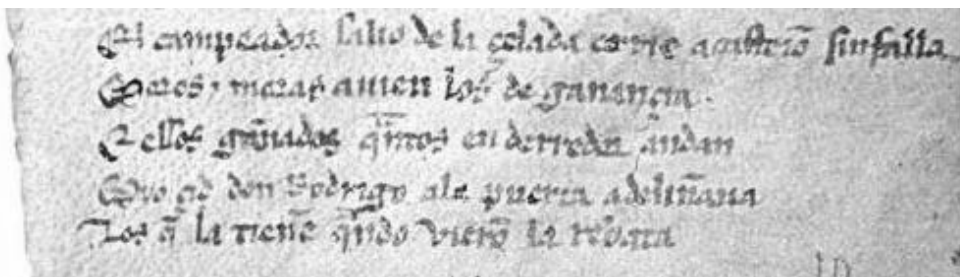 El campeador salio de la çelada corrie a casteiõ sin falla
Moros ⁊ moras auien los de ganançia
E essos gañados qͣntos en derredor andan
Myo çid don Rodrigo ala puerta adeliñaua
Los q̃ la tienẽ qͣndo vierõ la rebata